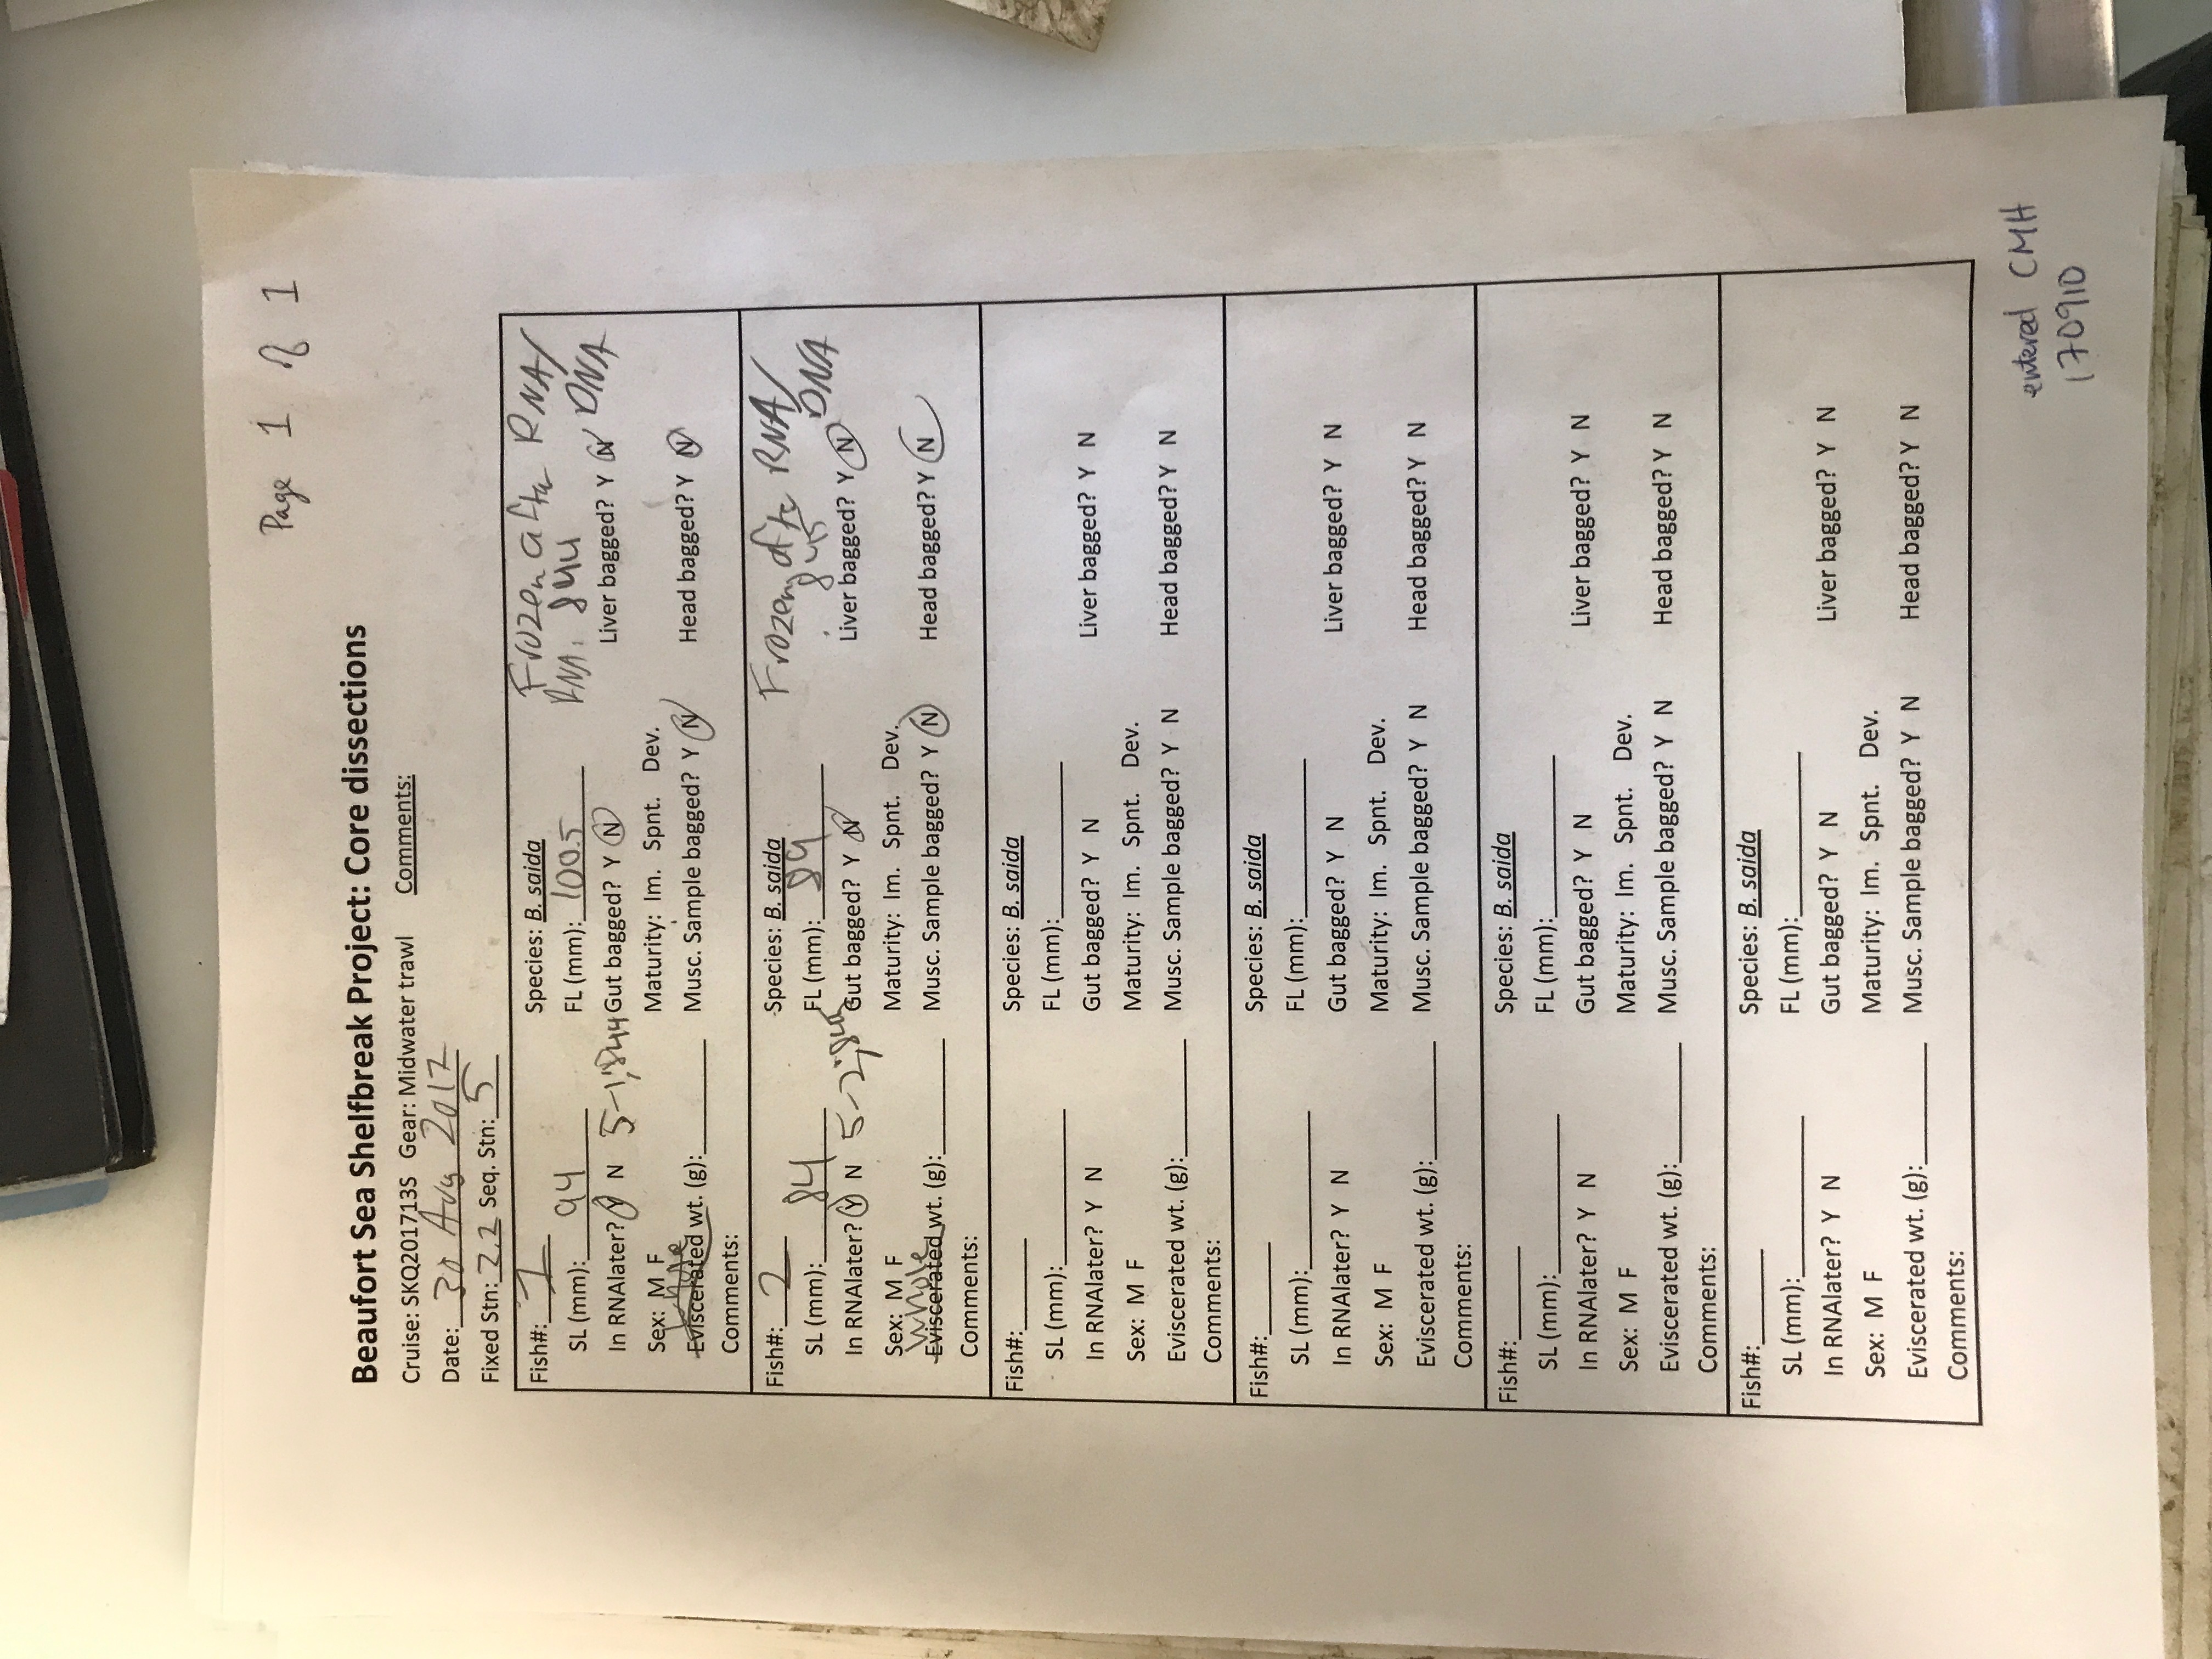 Page 1 of 1
Beaufort Sea Shelfbreak Project: Core dissections
Cruise: SKQ201713S Gear: Midwater trawl Comments:
Date: 30 Aug 2017
Fixed Stn: 2.2 Seq. Stn: 5
Fish#: 1 Species: B. saida Frozen after RNA/
SL (mm): 94 FL (mm): 100.5 RNA: 844 DNA
In RNAlater? Y N 5-1, 844 Gut bagged? Y N Liver bagged? Y N
Sex: M F Maturity: Im. Spnt. Dev.
whole
Eviscerated wt. (g): Musc. Sample bagged? Y N Head bagged? Y N
Comments:
Fish#: 2 Species: B. saida Frozen after RNA/
SL (mm): 84 FL (mm): 89 DNA
In RNAlater? Y N 5-2, Gut bagged? Y N Liver bagged? Y N
Sex: M F Maturity: Im. Spnt. Dev.
whole
Eviscerated wt. (g): Musc. Sample bagged? Y N Head bagged? Y N
Comments:
Fish#: Species: B. saida
SL (mm): FL (mm):
In RNAlater? Y N Gut bagged? Y N Liver bagged? Y N
Sex: M F Maturity: Im. Spnt. Dev.
Eviscerated wt. (g): Musc. Sample bagged? Y N Head bagged? Y N
Comments:
Fish#: Species: B. saida
SL (mm): FL (mm):
In RNAlater? Y N Gut bagged? Y N Liver bagged? Y N
Sex: M F Maturity: Im. Spnt. Dev.
Eviscerated wt. (g): Musc. Sample bagged? Y N Head bagged? Y N
Comments:
Fish#: Species: B. saida
SL (mm): FL (mm):
In RNAlater? Y N Gut bagged? Y N Liver bagged? Y N
Sex: M F Maturity: Im. Spnt. Dev.
Eviscerated wt. (g): Musc. Sample bagged? Y N Head bagged? Y N
Comments:
Fish#: Species: B. saida
SL (mm): FL (mm):
In RNAlater? Y N Gut bagged? Y N Liver bagged? Y N
Sex: M F Maturity: Im. Spnt. Dev.
Eviscerated wt. (g): Musc. Sample bagged? Y N Head bagged? Y N
Comments:
entered CMH
170910